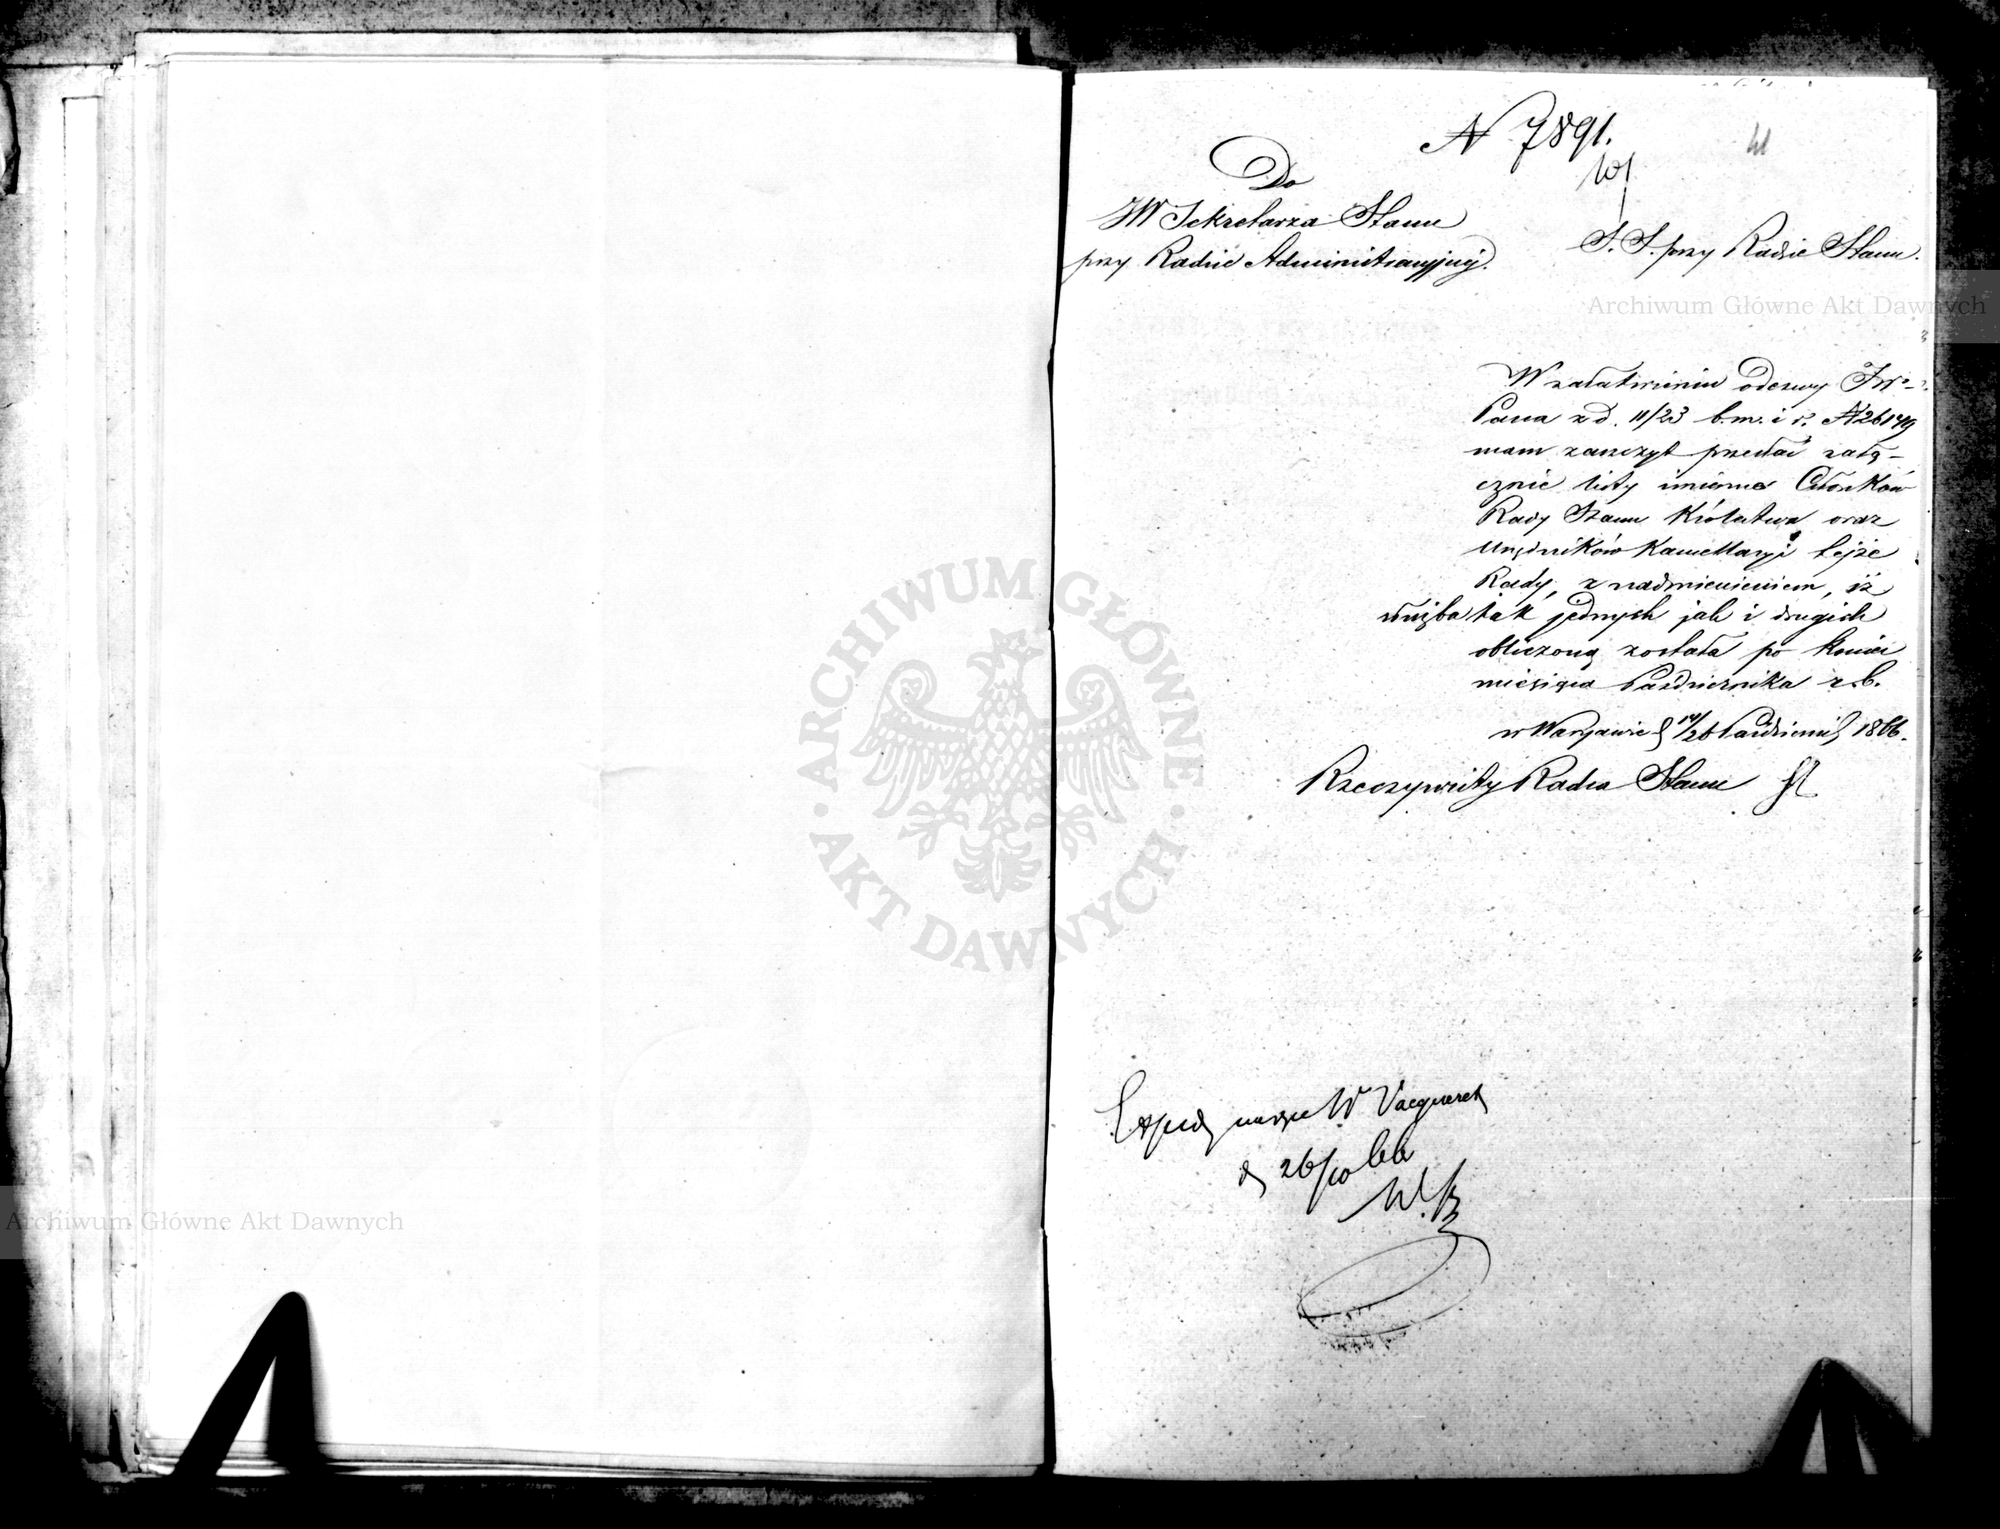 N 7891.
41
Do
JW Sekretarza Stanu
przy Radzie Administracyjnej.
S. S. przy Radzie Stanu.
Archiwum Główne Akt Dawnych
W załatwieniu odezwy JW-
Pana z d. 11/23 b.m. i r. N 26149
mam zaszczyt przesłać załą-
cznie listy imienne Członków
Rady Stanu Królestwa, oraz
Urzędników Kancellaryi tejże
Rady, z nadmienieniem, iż
służba tak jednych jak i drugich
obliczoną została po koniec
miesiąca Października r.b.
w Warszawie d 14/26 Październik 1866.
Rzeczywisty Radca Stanu
ARCHIWUM GŁÓWNE AKT DAWNYCH
W
d 26/10 66
Archiwum Główne Akt Dawnych